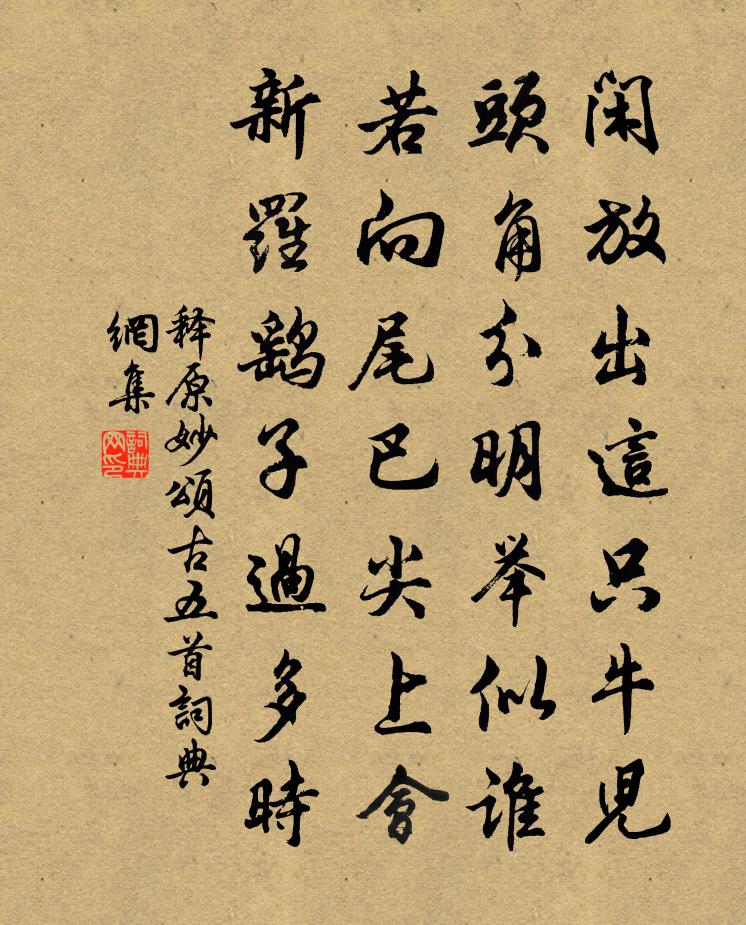 閑放出這只牛兒
頭角分明举似誰
若向尾巴尖上會
新羅鷂子過多時
释原妙頌古五首詞典
網集
詞典
网印